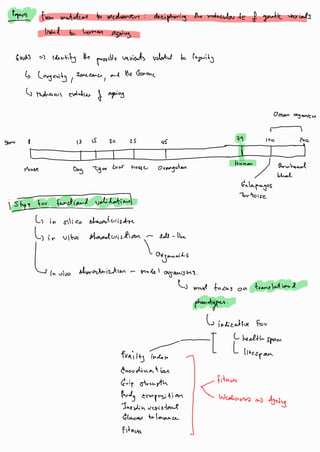 Paper: From molecular to mechanisms: deciphering the molecular
of genetic variants
linked to human ageing
Goals => identify the possible variants related to longevity
↳ Longevity, , and the Genome
↳ evolution of ageing
Ocean organisms
Years 1 12 15 20 25 45 79 100 200
Mouse Dog Tiger Cow Horse Orangutan Human Bowhead
Whale
Galapagos
Tortoise
Steps for functional validation
↳ in silico characterization
↳ in vitro characterization - cell-line
↳ Organoids
↳ in vivo characterization - model organisms.
↳ must focus on translational
phenotypes
↳ indicative for
↳ health span
↳ lifespan
Frailty index
Coordination
Grip strength
Body composition
Insulin resistant
Glucose tolerance
Fitness
fitness
Weakness => Ageing